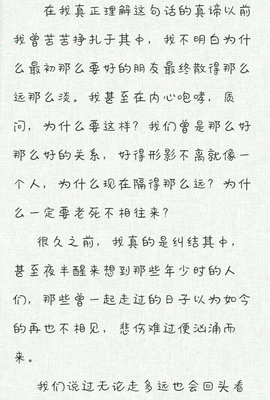 在我真正理解这句话的真谛以前
我曾苦苦挣扎于其中，我不明白为什
么最初那么要好的朋友最终散得那么
远那么淡。我甚至在内心咆哮，质
问，为什么要这样？我们曾是那么好
那么好的关系，好得形影不离就像一
个人，为什么现在隔得那么远？为什
么一定要老死不相往来？
很久之前，我真的是纠结其中，
甚至夜半醒来想到那些年少时的人
们，那些曾一起走过的日子以为如今
的再也不相见，悲伤难过便汹涌而
来。
我们说过无论走多远也会回头看